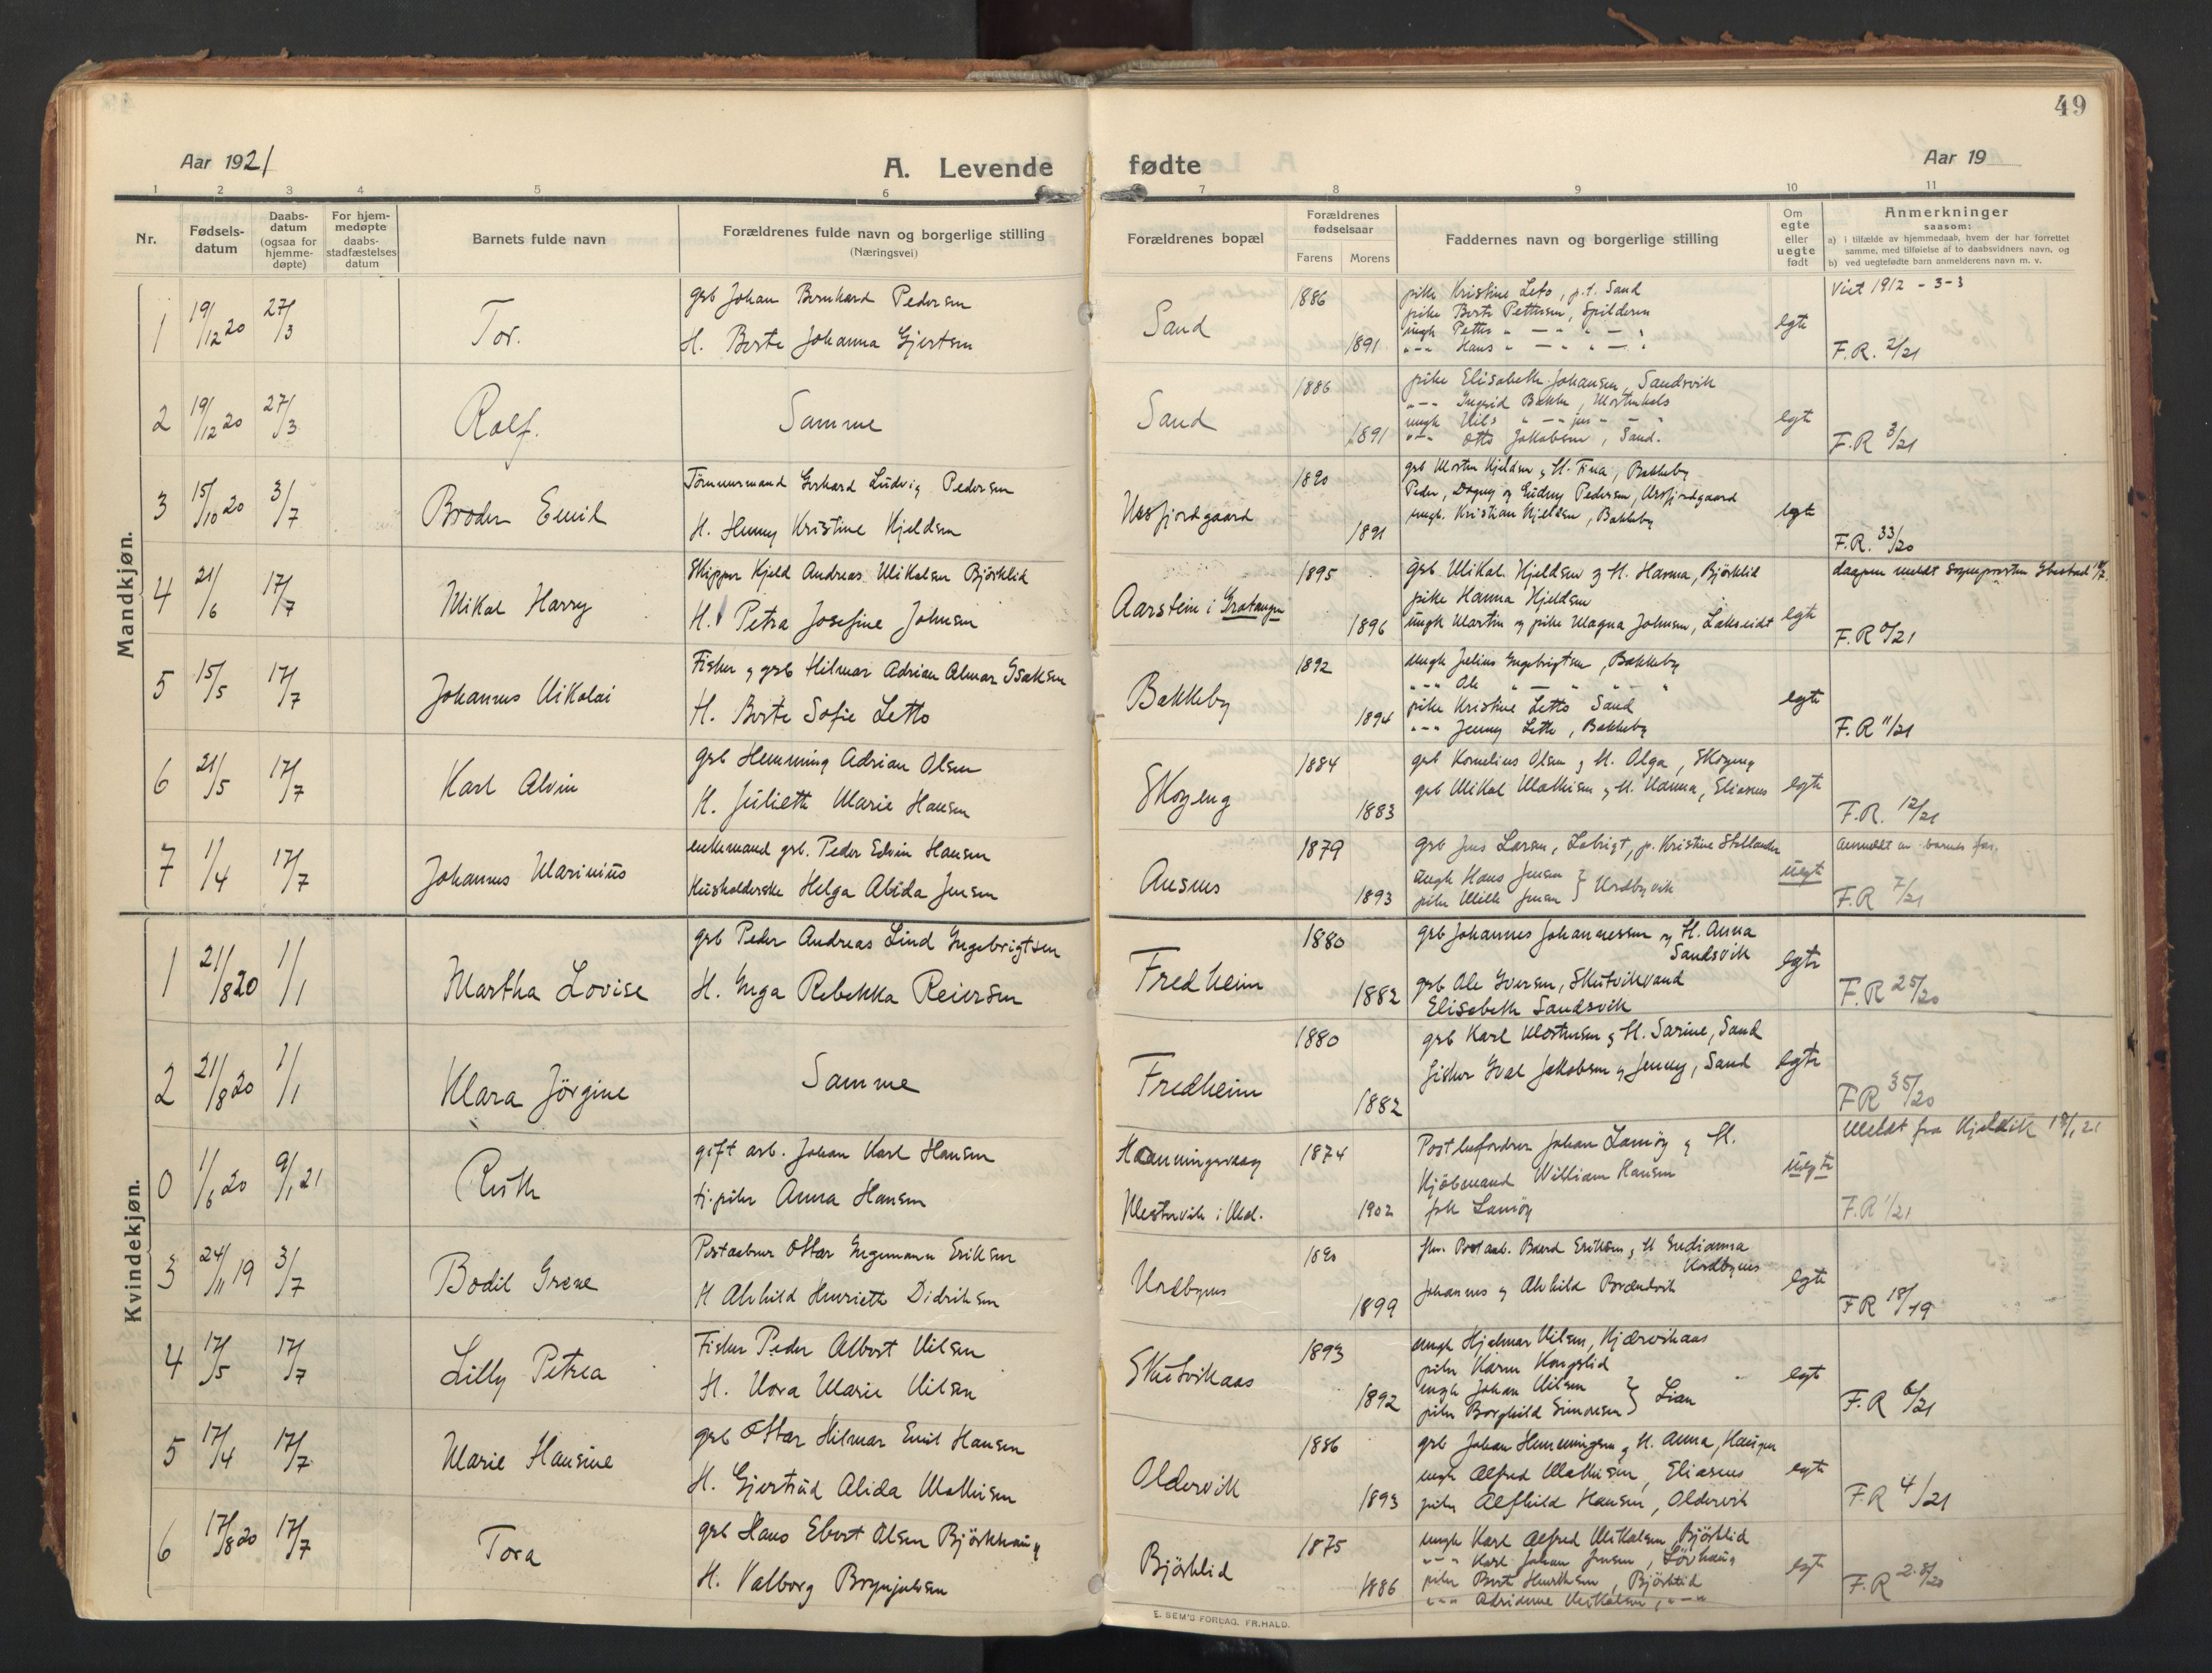 49
Aar 1921
A. Levende fødte
Aar 19
1 2 3 4 5 6 7 8 9 10 11
Nr.
Fødsels-
datum
Daabs-
datum
(ogsaa for
hjemme-
døpte)
For hjem-
medøpte
daabs-
stadfæstelses
datum
Barnets fulde navn
Forældrenes fulde navn og borgerlige stilling
(Næringsvei)
Forældrenes bopæl
Forældrenes
fødselsaar
Farens Morens
Faddernes navn og borgerlige stilling
Om
egte
eller
uegte
født
Anmerkninger
saasom:
a) i tilfælde av hjemmedaab, hvem der har forrettet
samme, med tilføielse af to daabsvidners navn, og
b) ved uegtefødte barn anmelderens navn m. v.
Mandkjøn.
1 19/12 20 27/3 Tor.
grb Johan Bernhard Pedersen
H. Berte Johanna Gjertsen
Sand 1886 1891
pike Kristine Leto, p.t. Sand
pike Berte Pettersen, Spilderen
ungk Petter " — " — "
"-- Hans " — " — "
egte
Viet 1912 - 3-3
F.R. 2/21
2 19/12 20 27/3 Rolf. Samme
Sand 1886 1891
pike Elisabeth Johansen, Sandsvik
"-- Ingrid Bakke,
ungk Nils
"-- Otto Jakobsen, Sand.
egte
F.R 3/21
3 15/10 20 3/7 Broder Emil
Tömmermand Gerhard Ludvig Pedersen
H. Henny Kristine Kjeldsen
1890 1891
grb Morten Kjeldsen & H. Tina, Bakkeby
Peder, Dagny og Gudny Pedersen,
ungk. Kristian Kjeldsen, Bakkeby
egte
F.R. 33/20
4 21/6 17/7 Mikal Harry
Skipper Kjeld Andreas Mikalsen Björklid
H. Petra Josefine Johnsen
Aarstein i Gratangen 1895 1896
grb. Mikal Kjeldsen & H. Hanna, Björklid
pike Hanna Kjeldsen
ungk Martin og pike Magna Johnsen, Lakseidt
egte
daapen meldt Sogneprosten Ibestad 18/7.
F.R 9/21
5 15/5 17/7 Johannes Nikolai
Fisker & grb Hilmar Adrian Almar Isaksen
H. Berte Sofie Letto
Bakkeby 1892 1894
ungk Julius Engebrigtsen, Bakkeby
"-- Ole " — " — "
pike Kristine Letto Sand
"-- Jenny Letto, Bakkeby
egte
F.R 11/21
6 21/5 17/7 Karl Alvin
grb Hemming Adrian Olsen
H. Juliette Marie Hansen
Skogeng 1884 1883
grb Kornelius Olsen & H. Olga, Skogeng
grb Mikal Mathisen & H. Hanna, Eliasnes
egte
F.R. 12/21
7 1/4 17/7 Johannes Marinius
enkemand grb. Peder Edvin Hansen
Husholderske Helga Alida Jensen
Ausnes 1879 1893
grb Jens Larsen, p. Kristine
ungk Hans Jensen } Nordbyvik
pike Jensen
uegte
anmeldt av barnes far.
F.R 7/21
Kvindekjøn.
1 21/8 20 1/1 Martha Lovise
grb Peder Andreas Lind Ingebrigtsen
H. Inga Rebekka Reiersen
Fredheim 1880 1882
grb Johannes Johannessen og H. Anna
Sandsvik
grb Ole Iversen, Skutvikvand
Elisabeth Sandsvik
egte
F.R 25/20
2 21/8 20 1/1 Klara Jörgine Samme
Fredheim 1880 1882
grb Karl Mortensen & H. Sarine, Sand
fisker Ivar Jakobsen & Jenny, Sand
egte
FR 35/20
0 1/6 20 9/1 21 Ruth
gift arb. Johan Karl Hansen
tj. pike Anna Hansen
Honningsvaag 1874
1902
Johan Lamöy & H.
Kjöbmand William Hansen
frk Lamöy
uegte
Meldt fra Kjelvik 18/1 21
F.R 1/21
3 24/11 19 3/7 Bodil Grene
Postaabner Ottar Ingemann Eriksen
H Alvhild Henriette Didriksen
Nordbynes 1890 1899
Postaab. Baard Eriksen & H Endianna
Nordbynes
Johannes & Alvhild
egte
FR 18/19
4 17/5 17/7 Lilly Petrea
Fisker Peder Albert Nilsen
H. Nora Marie Nilsen
Skutvikaas 1893 1892
ungk Hjalmar Nilsen, Kjærvikaas
pike Karen Kongslid
ungk Johan Nilsen
pike Borghild Simonsen } Lian
egte
F.R 6/21
5 17/4 17/7 Marie Hansine
grb Ottar Hilmar Emil Hansen
H. Gjertrud Alida Mathisen
Oldervik 1886 1893
grb Johan Henningsen & H. Anna, Haugen
ungk Alfred Mathisen, Eliasnes
pike Alfhild Hansen, Oldervik
egte
F.R 4/21
6 17/8 20 17/7 Tora
grb Hans Ebert Olsen Björkhaug
H. Valborg Brynjulsen
Björklid 1875 1886
ungk Karl Alfred Mikalsen, Björklid
"-- Karl Johan Jensen, Lövhaug
pike Berit Henriksen, Björklid
"-- Adrianne Mikalsen, "--"
egte
F.R 28/20
E. SEM'S FORLAG. FR.HALD.